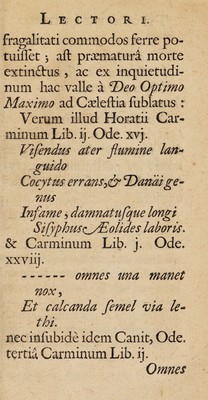 LECTORI.
fragalitati commodos ferre po-
tuiſſet ; aſt præmaturâ morte
extinctus , ac ex inquietudi-
num hac valle à Deo Optimo
Maximo ad Cæleſtia ſublatus :
Verum illud Horatii Car-
minum Lib. ij. Ode. xvj.
Viſendus ater flumine lan-
guido
Cocytus errans,& Danäi ge-
nus
Infame , damnatuſque longi
Siſyphus Æolides laboris.
& Carminum Lib. j. Ode.
xxviij.
------ omnes una manet
nox ,
Et calcanda ſemel via le-
thi.
nec inſubidè idem Canit, Ode.
tertiâ Carminum Lib. ij.
Omnes